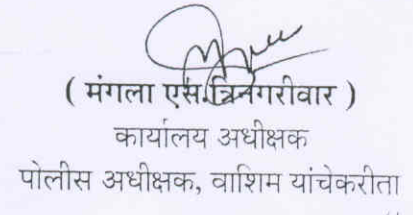 ( मंगला एस.त्रिनगरीवार )
कार्यालय अधीक्षक
पोलीस अधीक्षक, वाशिम यांचेकरीता